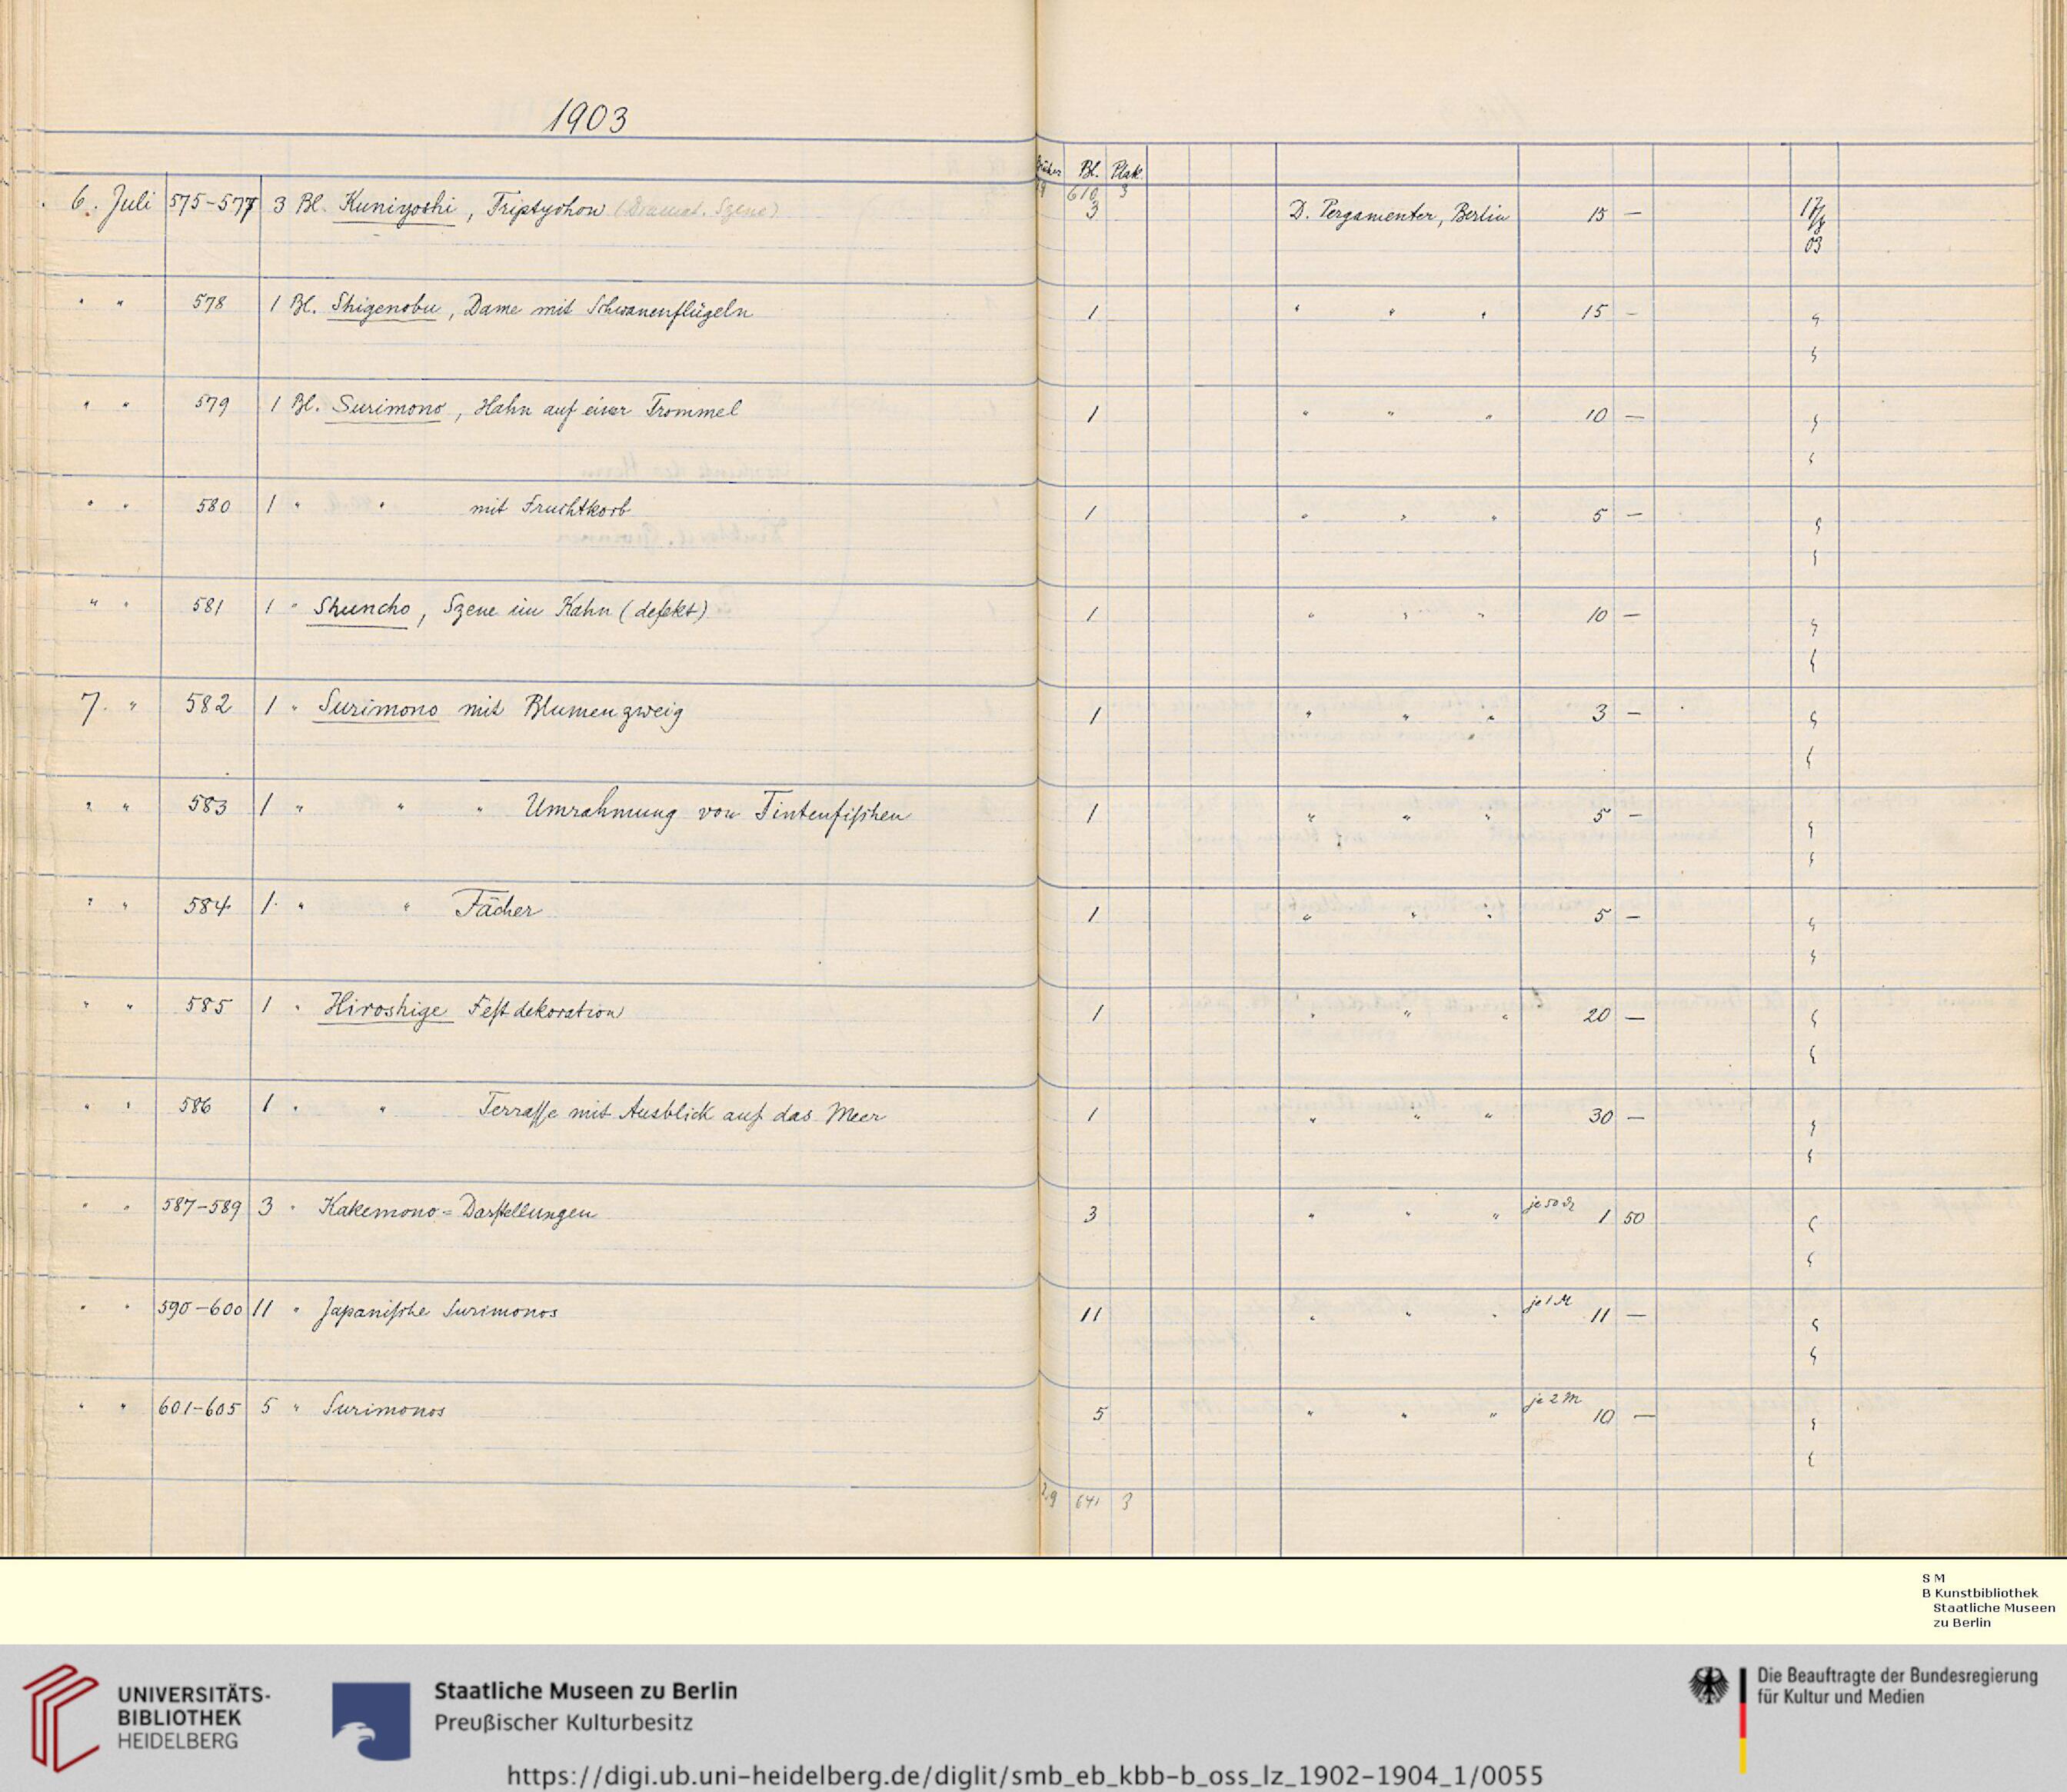 1903
Bücher Bl. Plak.
29 610 3
6. Juli 575-577 3 Bl. Kuniyoshi, Triptychon (Dramat. Szene) 3 D. Pergamenter, Berlin 15 — 17/8 03
" " 578 1 Bl. Shigenobu, Dame mit Schwanenflügeln 1 " " " 15 —
" " 579 1 Bl. Surimono, Hahn auf einer Trommel 1 " " " 10 —
" " 580 1 " " mit Fruchtkorb 1 " " " 5 —
" " 581 1 " Shuncho, Szene im Kahn (defekt) 1 " " " 10 —
7. " 582 1 " Surimono mit Blumenzweig 1 " " " 3 —
" " 583 1 " " " Umrahmung von Tintenfischen 1 " " " 5 —
" " 584 1 " " Fächer 1 " " " 5 —
" " 585 1 " Hiroshige Festdekoration 1 " " " 20 —
" " 586 1 " " Terrasse mit Ausblick auf das Meer 1 " " " 30 —
" " 587-589 3 " Kakemono-Darstellungen 3 " " " je 50 ₰ 1 50
" " 590-600 11 " Japanische Surimonos 11 " " " je 1 M 11 —
" " 601-605 5 " Surimonos 5 " " " je 2 M 10 —
29 641 3
S M
B Kunstbibliothek
Staatliche Museen
zu Berlin
UNIVERSITÄTS-
BIBLIOTHEK
HEIDELBERG
Staatliche Museen zu Berlin
Preußischer Kulturbesitz
Die Beauftragte der Bundesregierung
für Kultur und Medien
https://digi.ub.uni-heidelberg.de/diglit/smb_eb_kbb-b_oss_lz_1902-1904_1/0055